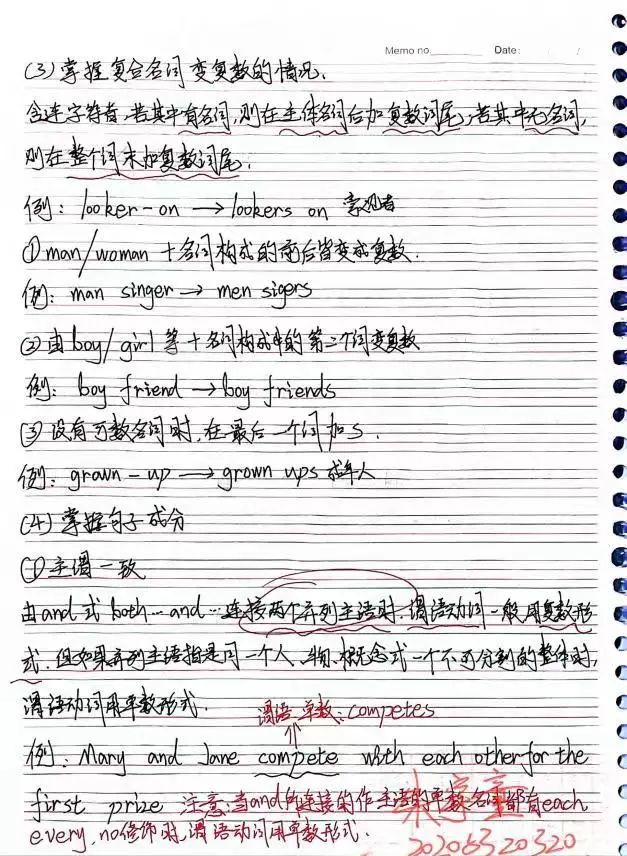 Memo no. Date: / /
(3)掌握复合名词变复数的情况.
含连字符者,若其中有名词,则在主体名词后加复数词尾,若其中无名词,
则在整个词末加复数词尾.
例: looker-on → lookers on 旁观者
①man/woman 十名词构成的前后皆变成复数.
例: man singer → men sigers
②由boy/girl等十名词构成的第二个词变复数
例: boy friend → boy friends
③没有可数名词时,在最后一个词加s.
例: grown-up → grown ups 成年人
(4)掌握句子成分
①主谓一致
由and或both…and…连接两个并列主语时,谓语动词一般用复数形
式.但如果并列主语指是同一个人、物、概念或一个不可分割的整体时,
谓语动词用单数形式.
谓语单数:competes
例: Mary and Jane compete with each other for the
first prize 注意:当and所连接的作主语的单数名词都有each
every,no修饰时,谓语动词用单数形式.
20206320320